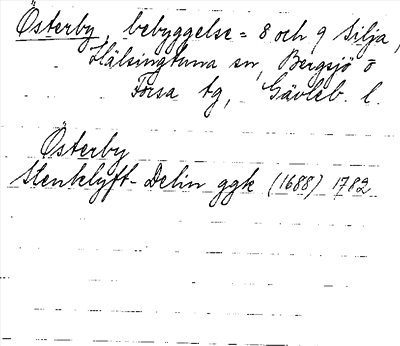 Österby, bebyggelse = 8 och 9 Silja,
Hälsingtuna sn, Bergsjö o
Forsa tg, Gävleb. l.
Österby
Stenklyft-Delin ggk (1688) 1782